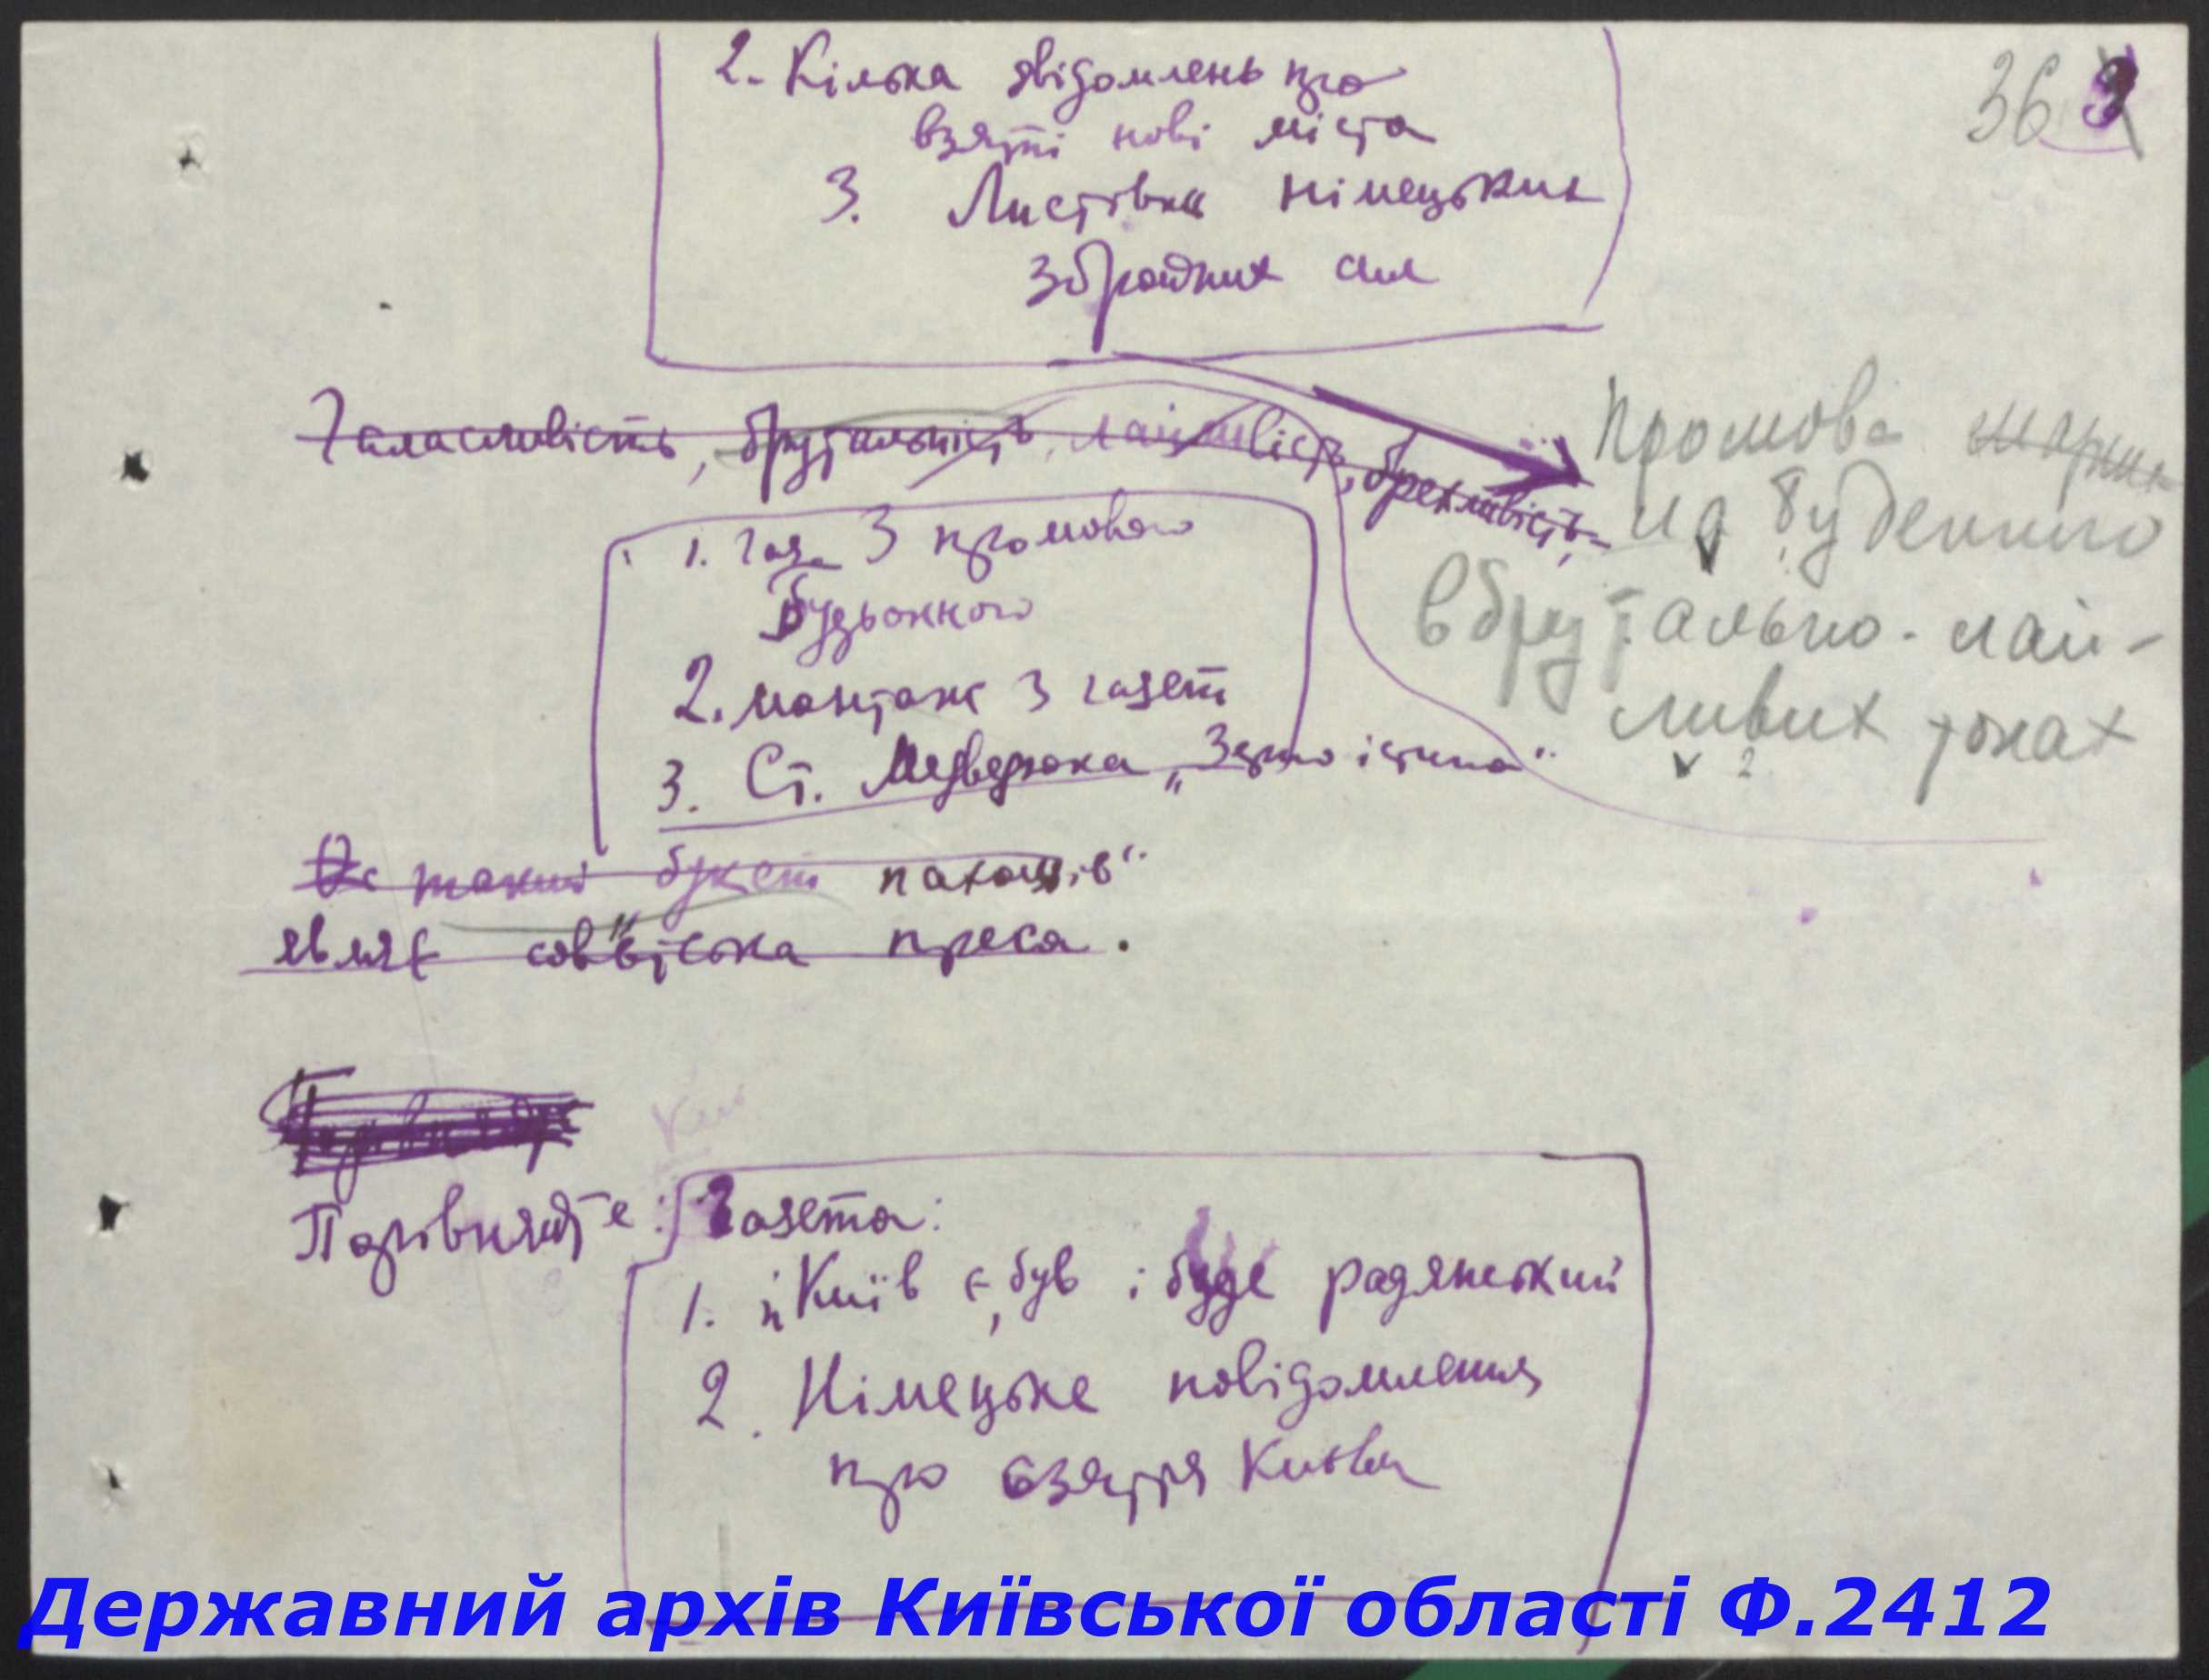 36
2. Кілька звідомлень про
взяті нові міста
3. Листівки німецьких
збройних сил
Галасливість, брутальність, лайливість, брехливість
Промова
на Буденного
в брутально-лай-
ливих тонах
1. Газ. з промовою
Будьонного
2. монтаж з газет
3. Ст. Медведюка „Зерно істини"
Ось такий букет пахощів"
являє совєтська преса.
Порівняйте: Газета:
1. „Київ є, був і буде радянський
2. Німецьке повідомлення
про взяття Києва
Державний архів Київської області Ф.2412